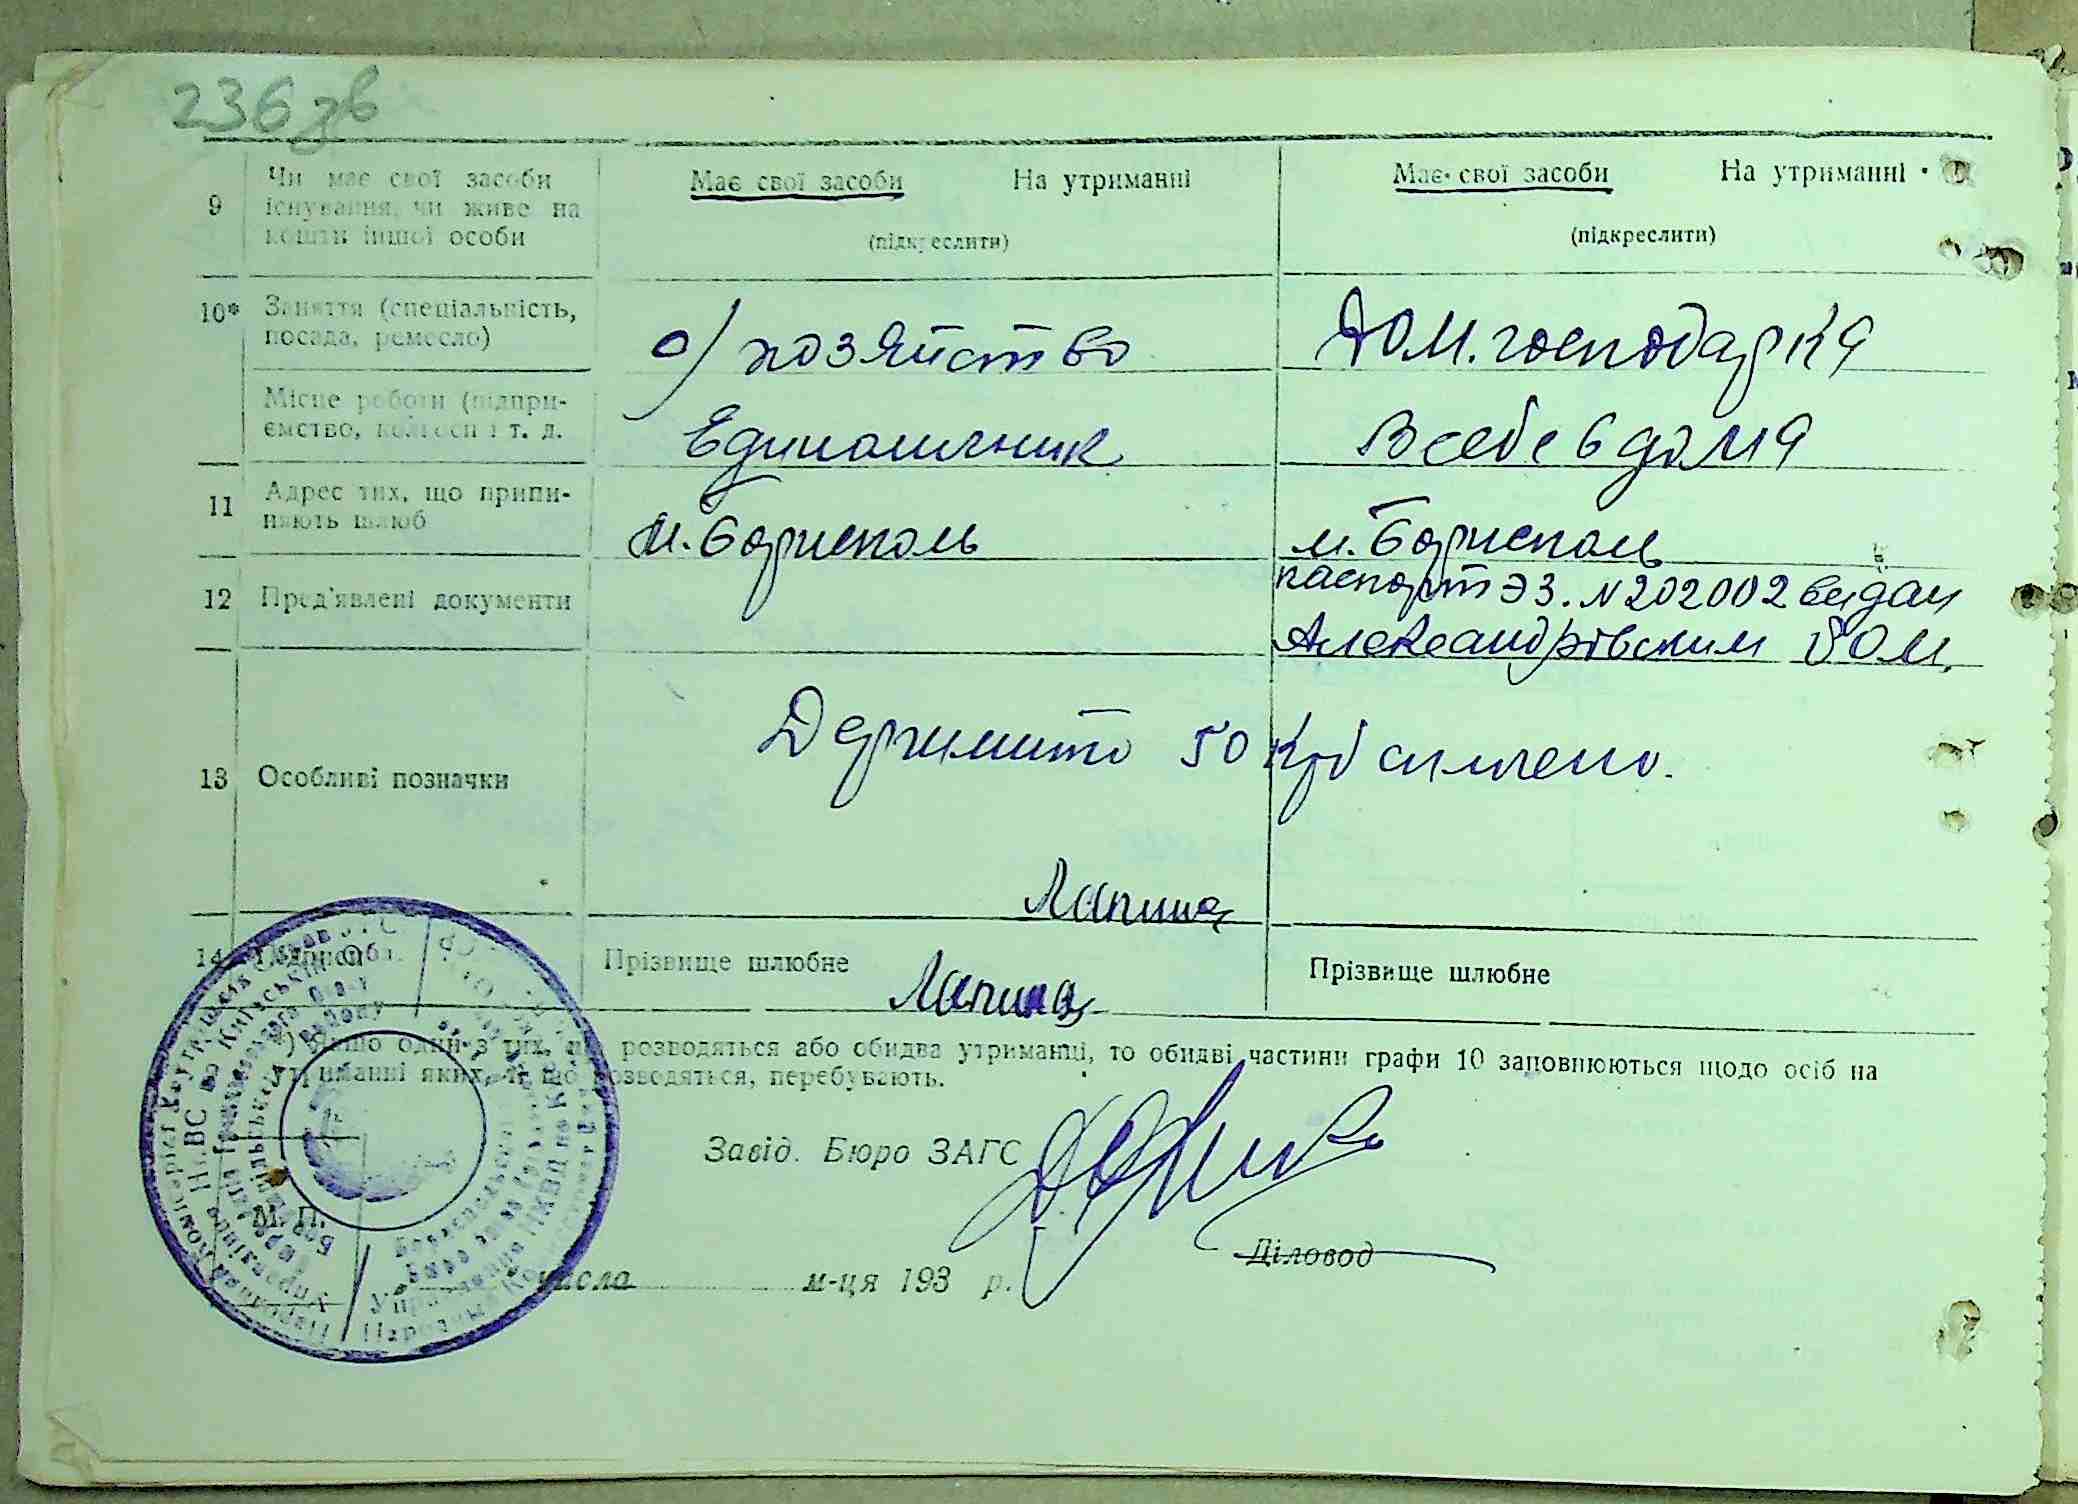 236 зв
9 Чи має свої засоби існування, чи живе на кошти іншої особи
Має свої засоби На утриманні
(підкреслити)
Має свої засоби На утриманні
(підкреслити)
10* Заняття (спеціальність, посада, ремесло)
с/хозяйство
Дом. господарка
Місце роботи (підпри-
ємство, колгосп і т. д.
Единоличник
В себе в дома
11 Адрес тих, що припи-
няють шлюб
м. Бориспол​ь
м. Бориспол​ь
12 Пред'явлені документи
паспорт ЭЗ. N 202002 видан
Александровским
13 Особливі позначки
50 крб сплачено.
Лапина
14 Підписи
Прізвище шлюбне
Лапина
Прізвище шлюбне
*) Якщо один з тих, що розводяться або обидва утриманці, то обидві частини графи 10 заповнюються щодо осіб на
утриманні яких, ті що розводяться, перебувають.
Завід. Бюро ЗАГС
М. П.
Діловод
числа м-ця 193 р.